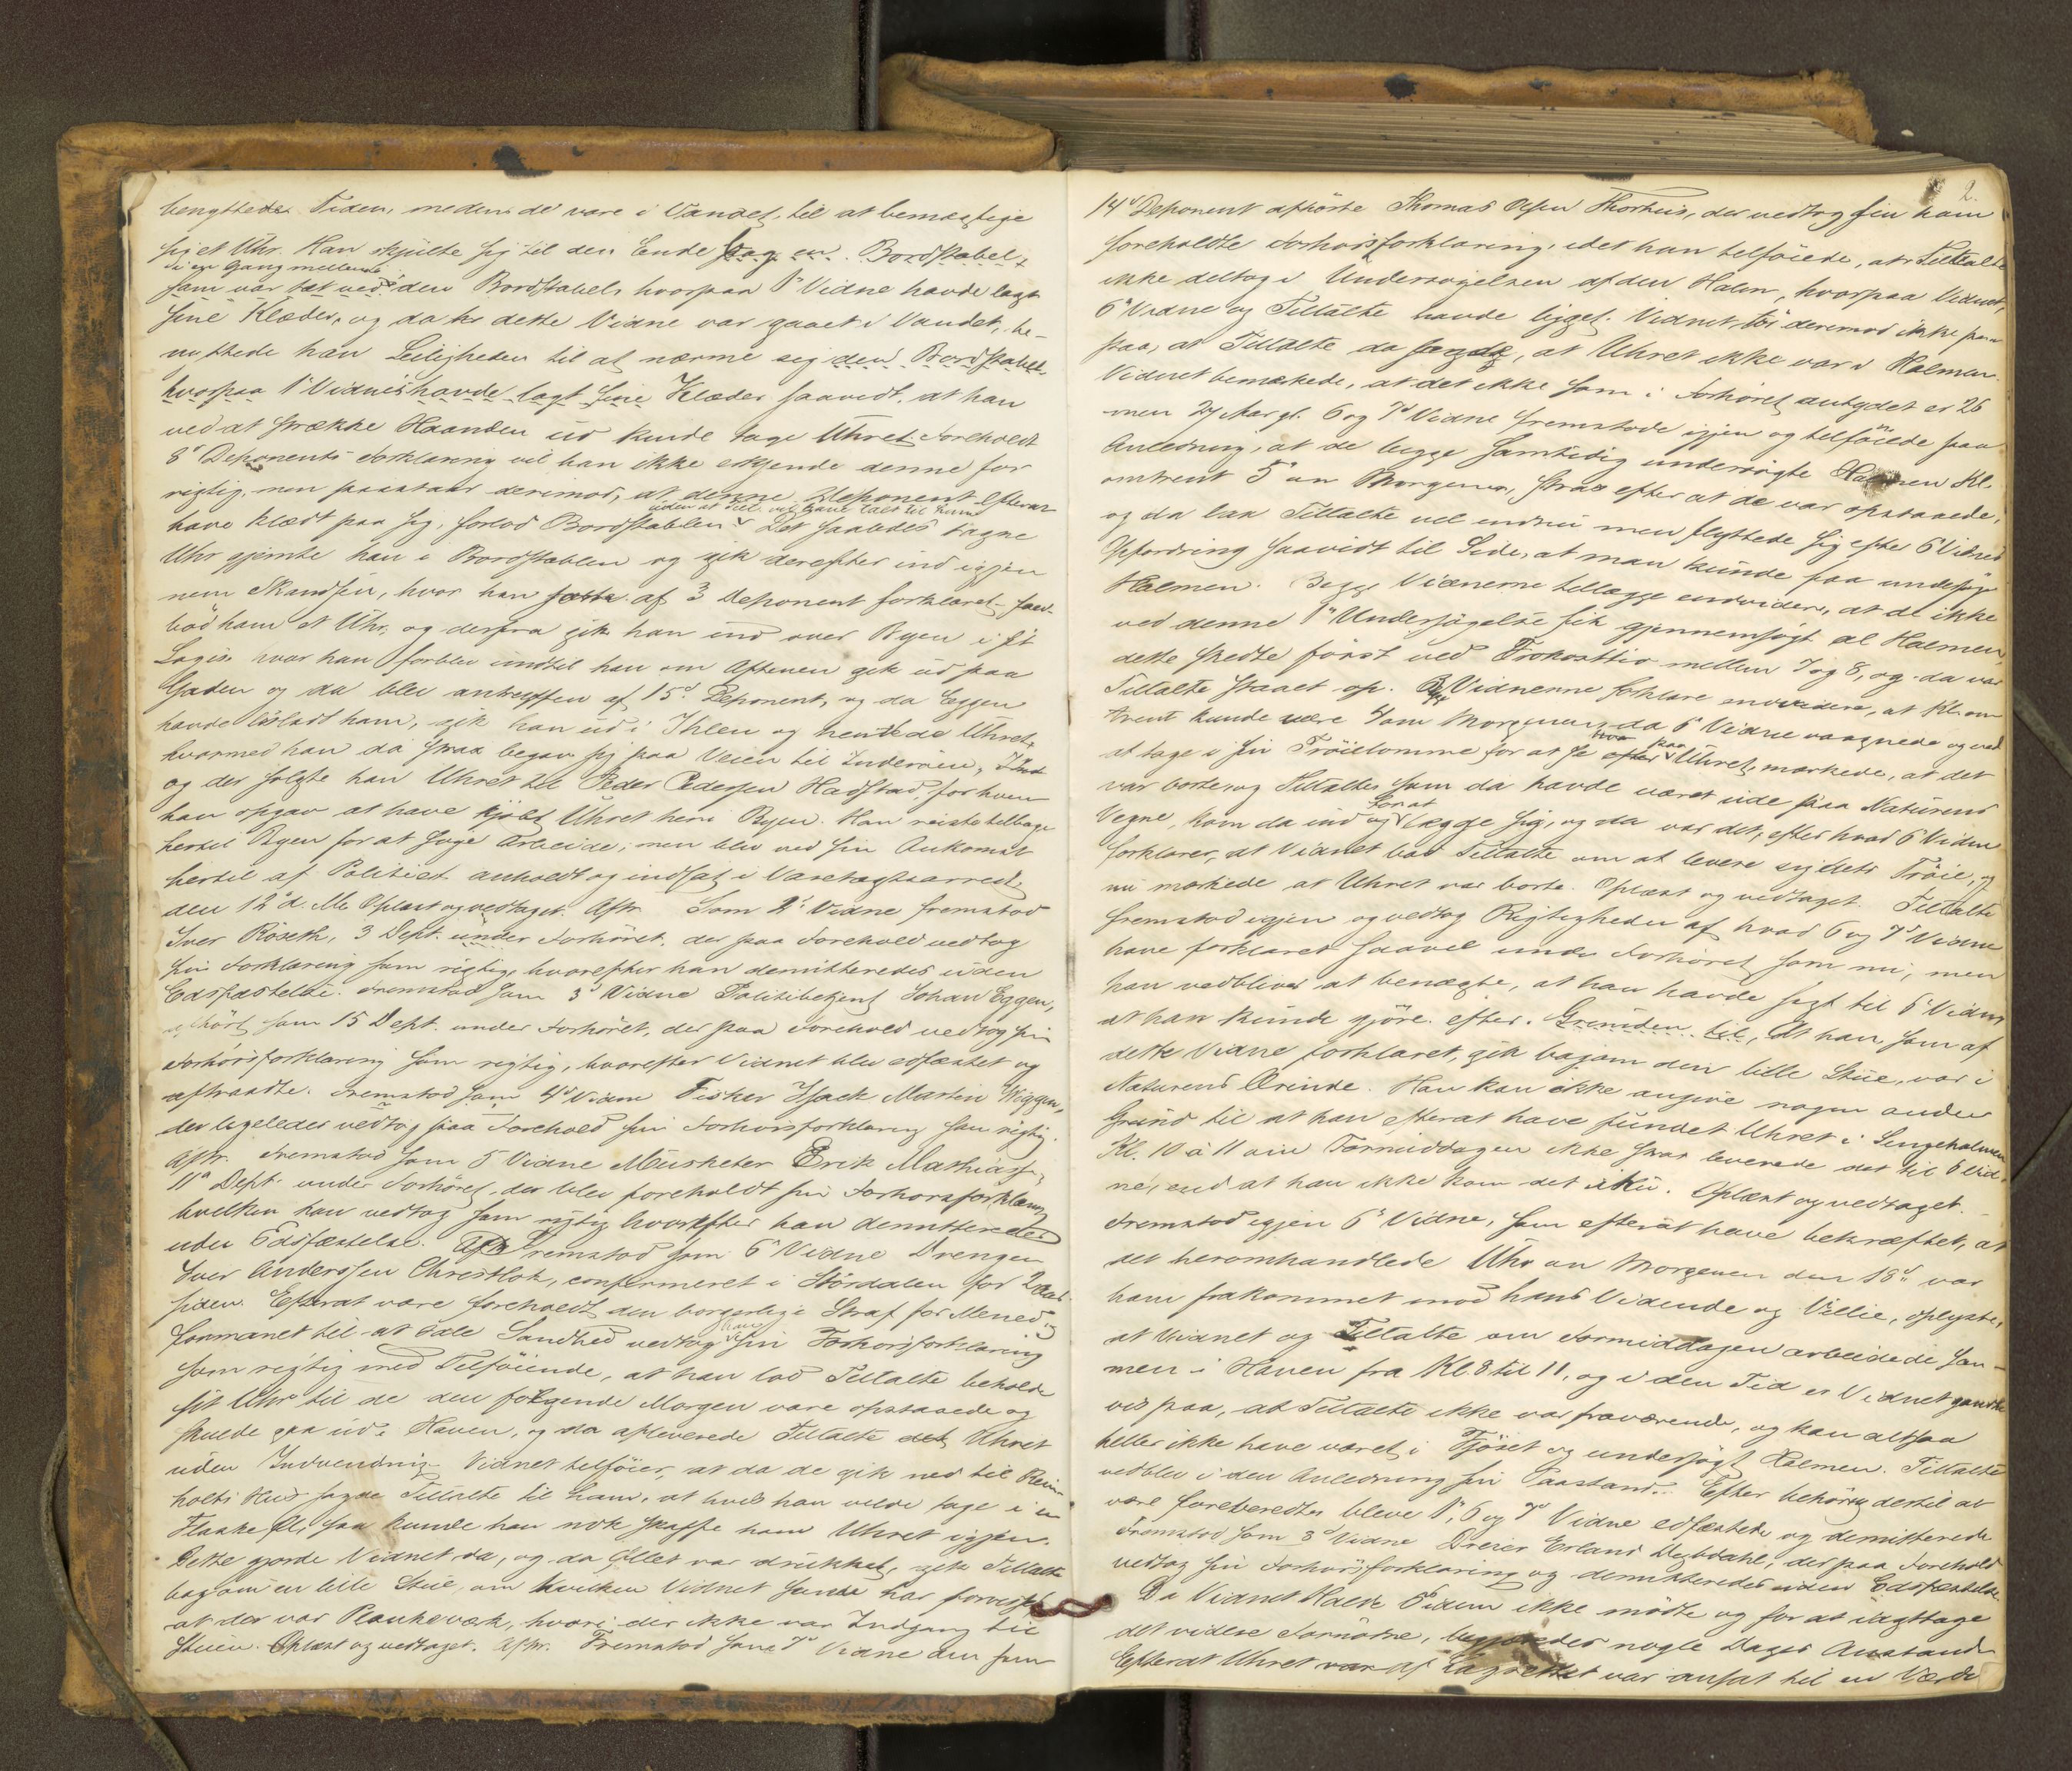 benyttede Tiden, medens de vare i Vandet, til at bemægtige
sig et Uhr. Han skjulte sig til den Ende bag en Bordstabel,
der en Gang mellem
som var tæt ved den Bordstabel, hvorpaa 1ste Vidne havde lagt
sine Klæder, og da dette Vidne var gaaet i Vandet, be-
nyttede han Leiligheden til at nærme sig den Bordstabel,
hvorpaa 1ste Vidne havde lagt sine Klæder saavidt, at han
ved at strække Haanden ud kunde tage Uhret. Foreholdt
8d Deponents Forklaring vil han ikke erkjende denne for
rigtig, men paastaar derimod, at denne Deponent efterat
uden at Tilt. vil have talt til ham
have klædt paa sig, forlod Bordstablen. Det saaledes tagne
Uhr gjemte han i Bordstablen og gik derefter ind igjen
nem Skandsen, hvor han af 3 Deponent forklaret
bød ham et Uhr, og derfra gik han ind over Byen i sit
Logis hvor han forblev indtil han om Aftenen gik ud paa
Gaden og da blev antruffen af 15d Deponent, og da Eggen
havde ladt ham, gik han ud i Ihlen og hentede Uhret,
hvormed han da strax begav sig paa Veien til Inderøen,
og der solgte han Uhret til Peder Pedersen Hadstad, for hvem
han opgav at have kjøbt Uhret her i Byen. Han reiste tilbage
hertil Byen for at søge Arbeide; men blev ved sin Ankomst
hertil af Politiet anholdt og indsat i Varetægtsarrest
den 12te d. M. Oplæst og vedtaget. Aftr. Som 2d Vidne fremstod
Iver Röseth, 3 Dept. under Forhöret, der paa Forehold vedtog
sin Forklaring som rigtig, hvorefter han demitteredes uden
Edsfæstelse. Fremstod som 3d Vidne Politibetjent Johan Eggen,
afhört som 15 Dept. under Forhöret, der paa Forehold vedtog sin
Forhörsforklaring som rigtig, hvorefter Vidnet blev edfæstet og
aftraadte. Fremstod som 4d Vidne Fisker Isack Martin Wiggen,
der ligeledes vedtog paa Forehold sin Forhörsforklaring som rigtig.
Aftr. Fremstod som 5 Vidne Musketer Erik Mathiass,
11te Dept. under Forhöret, der blev foreholdt sin Forhörsforklaring
hvilken han vedtog som rigtig hvorefter han demitteredes
uden Edsfæstelse. Aftr. Fremstod som 6 Vidne Drengen
Iver Anderssen Christlok, confirmeret i Størdalen for 2 Aar
siden. Efterat være foreholdt den borgerlige Straf for Mened og
formanet til at tale Sandhed vedtog sin Forhörsforklaring
som rigtig med Tilföiende, at han lod Tiltalte beholde
sit Uhr til de den følgende Morgen vare opstaaede og
skulde gaa ud i Haven, og da afleverede Tiltalte det Uhret
uden Indvending. Vidnet tilföier, at da de gik ned til Rein-
holts Hus sagde Tiltalte til ham, at hvis han vilde tage i en
Flaske Öl, saa kunde han nok skaffe ham Uhret igjen.
Dette gjorde Vidnet da, og da Öllet var drukket, gik Tiltalte
bagom en lille Stue, om hvilken Vidnet senere har forvisset
at der var Plankeværk, hvori der ikke var Indgang til
Stuen. Oplæst og vedtaget. Aftr. Fremstod som 7d Vidne den som
2.
14d Deponent afhörte Thomas Olsen Thorhus, der vedtog sin ham
foreholdte Forhörsforklaring, idet han tilföiede, at Tiltalte
ikke deltog i Undersögelsen af den Halm, hvorpaa Vidnet,
6te Vidne og Tiltalte havde ligget. Vidnet tör derimod ikke paa-
staa, at Tiltalte da sagde, at Uhret ikke var i Halmen.
Vidnet bemærkede, at det ikke som i Forhöret antydet er 26
men 27 Aar gl. 6 og 7d Vidne fremstode igjen og tilföiede paa
Anledning, at de begge samtidig undersögte Halmen Kl.
omtrent 5 om Morgenen, strax efter at de var opstaaede,
og da laa Tiltalte vel endnu men flyttede sig efter 6 Vidnes
Opfordring saavidt til Side, at man kunde faa undersöge
Halmen. Begge Vidnerne tillægge endvidere, at de ikke
ved denne 1ste Undersögelse fik gjennemsögt al Halmen,
dette skedte först ved Frokosttid mellem 7 og 8, og da var
Tiltalte staaet op. Vidnerne forklare endvidere, at Kl. om-
trent kunde være 4 om Morgenen, da 6te Vidne vaagnede og ved
at tage i sin Tröielomme for at se hvor Uhret, mærkede, at det
var borte, og Tiltalte, som da havde været ude paa Naturens
for at
Vegne, kom da ind og lægge sig, og da var det, efter hvad 6 Vidne
forklarer, at Vidnet bad Tiltalte om at levere sig dets Tröie, og
nu mærkede at Uhret var borte. Oplæst og vedtaget. Tiltalte
fremstod igjen og vedtog Rigtigheden af hvad 6 og 7d Vidne
have forklaret saavel under Forhöret som nu, men
han vedblive at benægte, at han havde sagt til 6te Vidne
at han kunde gjöre efter. Grunden til, at han, som af
dette Vidne forklaret, gik bagom den lille Stue, var i
Naturens Ærinde. Han kan ikke angive nogen anden
Grund til at han efterat have fundet Uhret i Sengehalmen
Kl. 10 à 11 om Formiddagen ikke strax leverede det til 6 Vid-
ne, end at han ikke kom det ihu. Oplæst og vedtaget.
Fremstod igjen 6te Vidne, som efterat have bekræftet, at
det heromhandlede Uhr om Morgenen den 18de var
ham frakommet mod hans Vidende og Villie, oplyste,
at Vidnet og Tiltalte om Formiddagen arbeidede sam-
men i Haven fra Kl. 8 til 11, og i den Tid er Vidnet ganske
vis paa, at Tiltalte ikke var fraværende, og kan altsaa
heller ikke have været i Fjöset og undersögt Halmen. Tiltalte
vedblev i den Anledning sin Paastand. Efter behörig dertil at
være foreberedte bleve 1ste, 6 og 7d Vidne edfæstede og demitterede
Fremstod som 8d Vidne Dreier Erland Degbdahl, der paa Forehold
vedtog sin Forhörsforklaring og demitteredes uden Edsfæstelse.
Da Vidnet ikke mödte og for at iagttage
det videre Fornödne, begjæredes nogle Dages Anstand
Efterat Uhret var af Lagrettet var ansat til en Værdi